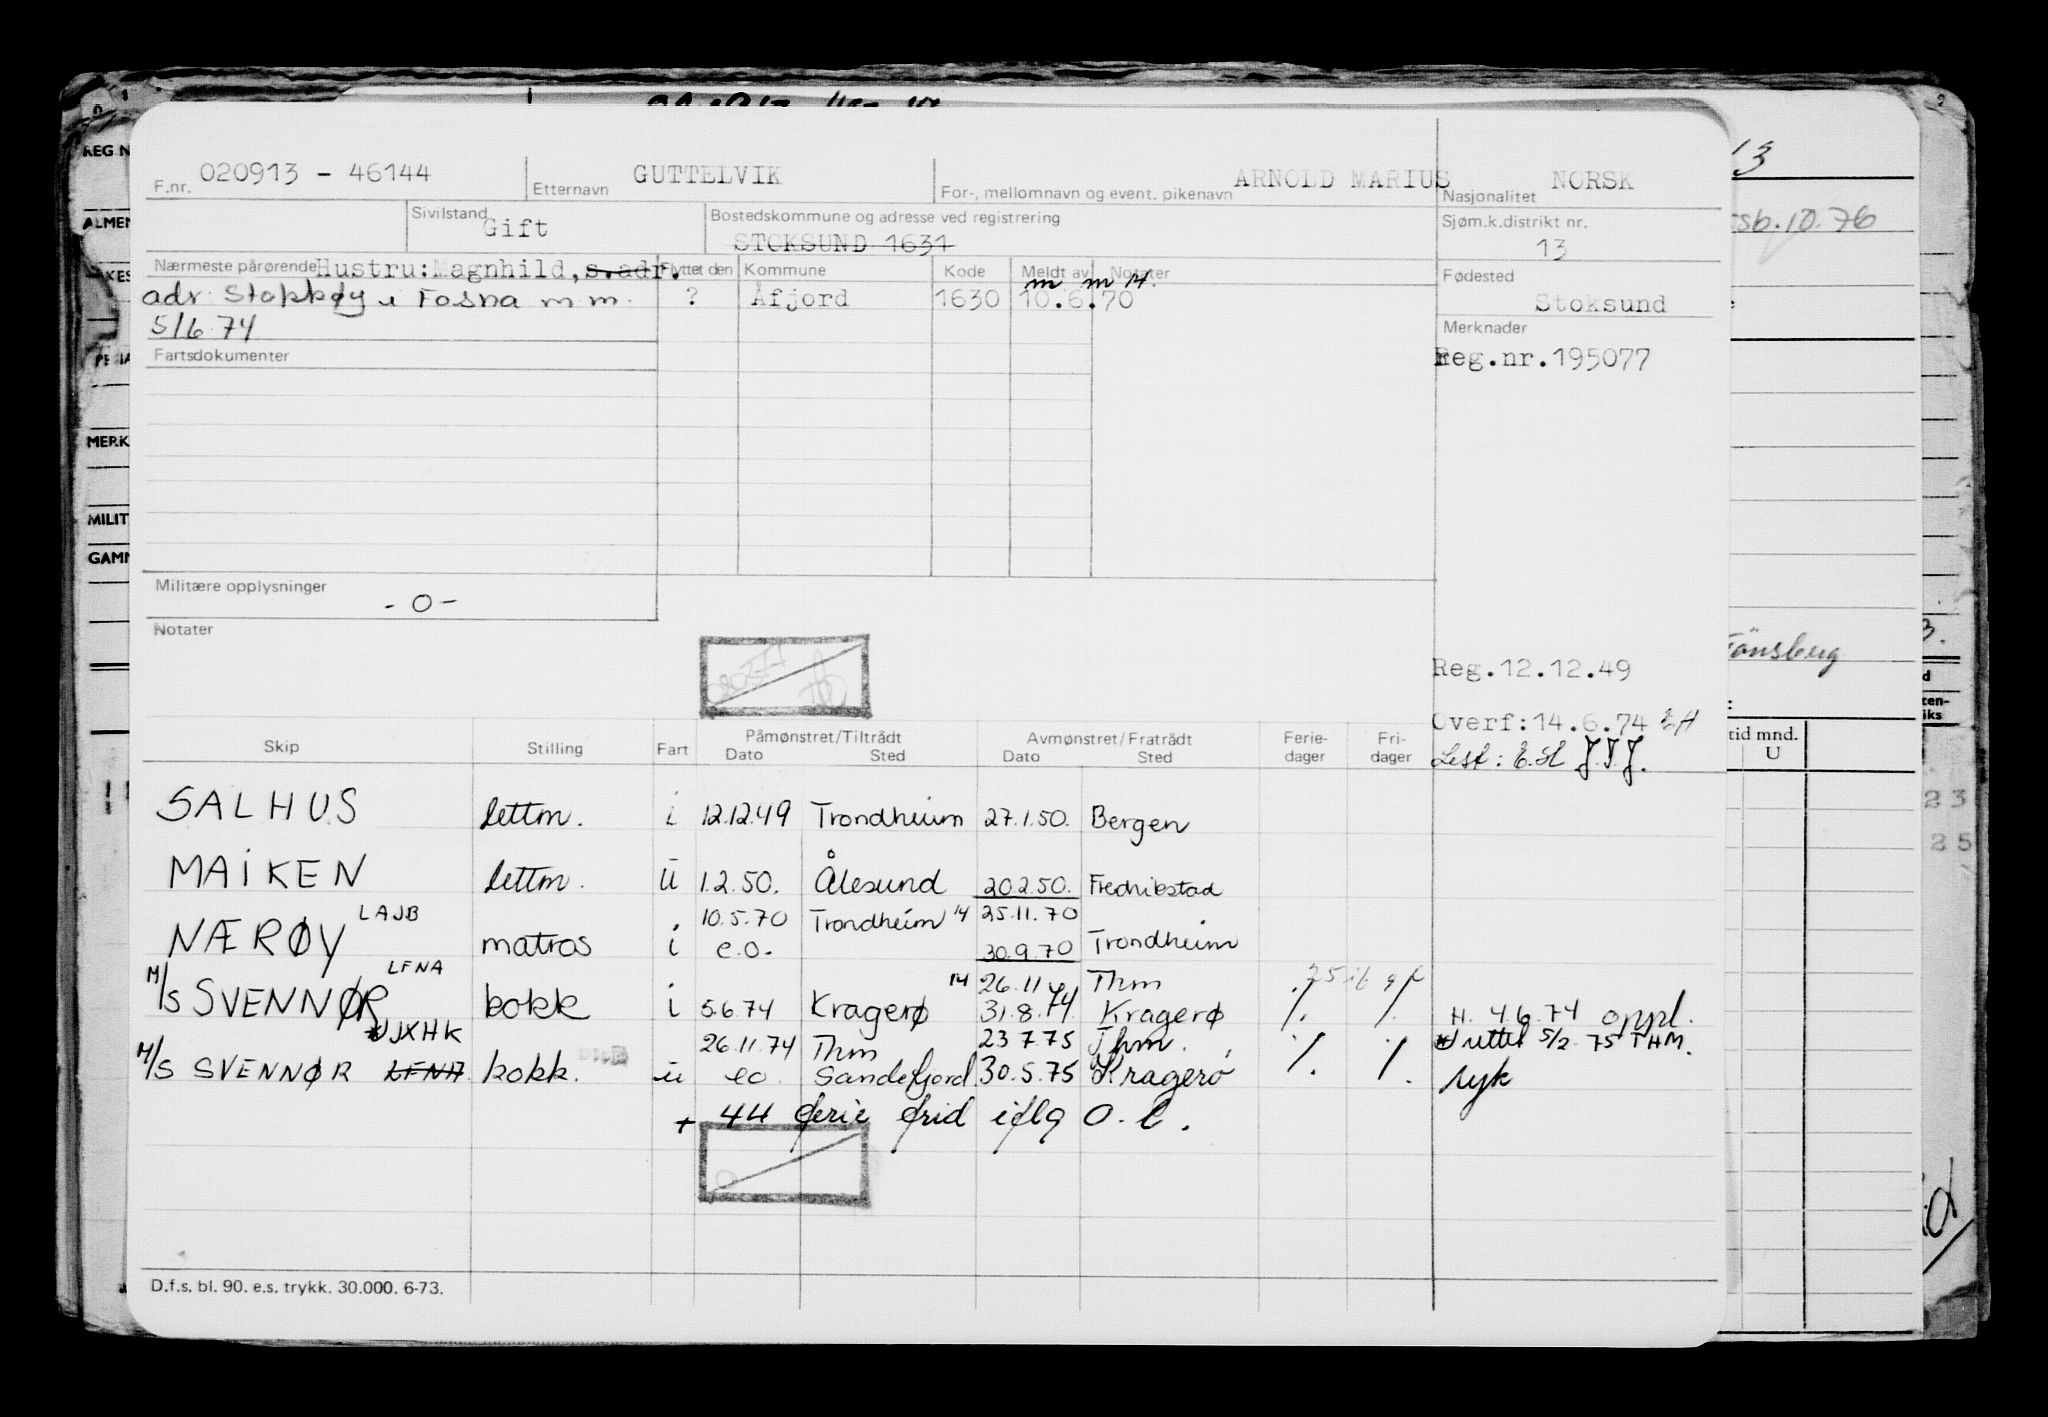 REG N
ALMEN
MERK
MILIT
GAMM
F.nr. 020913 - 46144 Etternavn GUTTELVIK For-, mellomnavn og event. pikenavn ARNOLD MARIUS Nasjonalitet NORSK
Sivilstand Gift Bostedskommune og adresse ved registrering STOKSUND 1631 Sjøm.k.distrikt nr. 13
Nærmeste pårørende Hustru: Magnhild, s.adr. Flyttet den Kommune Kode Meldt av Notater Fødested Stoksund
m m 14.
adr Stokkøy i Fosna m m. ? Åfjord 1630 10.6.70
5/6 74
Merknader
Reg.nr.195077
Fartsdokumenter
Militære opplysninger - 0 -
Notater
Reg.12.12.49
Overf:14.6.74 EH
Lest: E.H J.T.J.
Skip Stilling Fart Påmønstret/Tiltrådt Dato Sted Avmønstret/Fratrådt Dato Sted Ferie-dager Fri-dager
SALHUS lettm. i 12.12.49 Trondheim 27.1.50. Bergen
MAIKEN lettm. u 1.2.50. Ålesund 20.2.50. Fredrikstad
LAJB 10.5.70 Trondheim 14 25.11.70
NÆRØY matros i e.o. 30.9.70 Trondheim
LFNA 14 26.11 Thm
M/S SVENNØR kokk i 5.6.74 Kragerø 31.8.74 Kragerø ./. ./. H. 4.6.74 oppl.
JXHK 26.11.74 Thm 23 7 75 Thm. rettet 5/2 75 THM.
M/S SVENNØR LFNA kokk. u eo. Sandefjord 30.5.75 Kragerø ./. ./. syk
+ 44 ferie frid iflg O.C.
D.f.s. bl. 90. e.s. trykk. 30.000. 6-73.
13
10.76
Tönsberg
tid mnd.
U
23
25